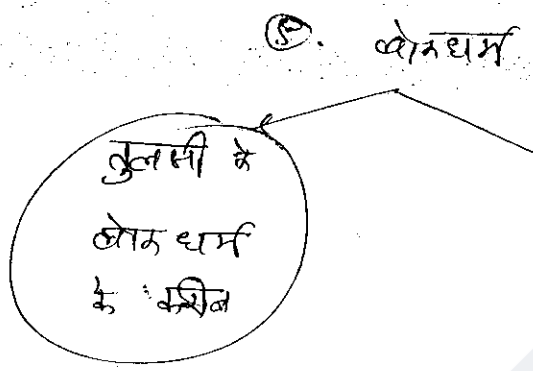 5. लोकधर्म
तुलसी के
लोक धर्म
के करीब